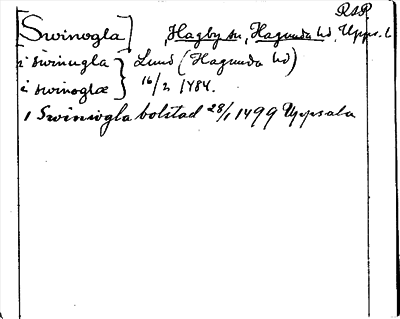 RAP
[Swinogla] Hagby sn, Hagunda hd, Upps. l
i swinugla } Lund (Hagunda hd)
i swinoglæ } 16/2 1484.
i Swinwgla bolstad 28/1 1499 Uppsala